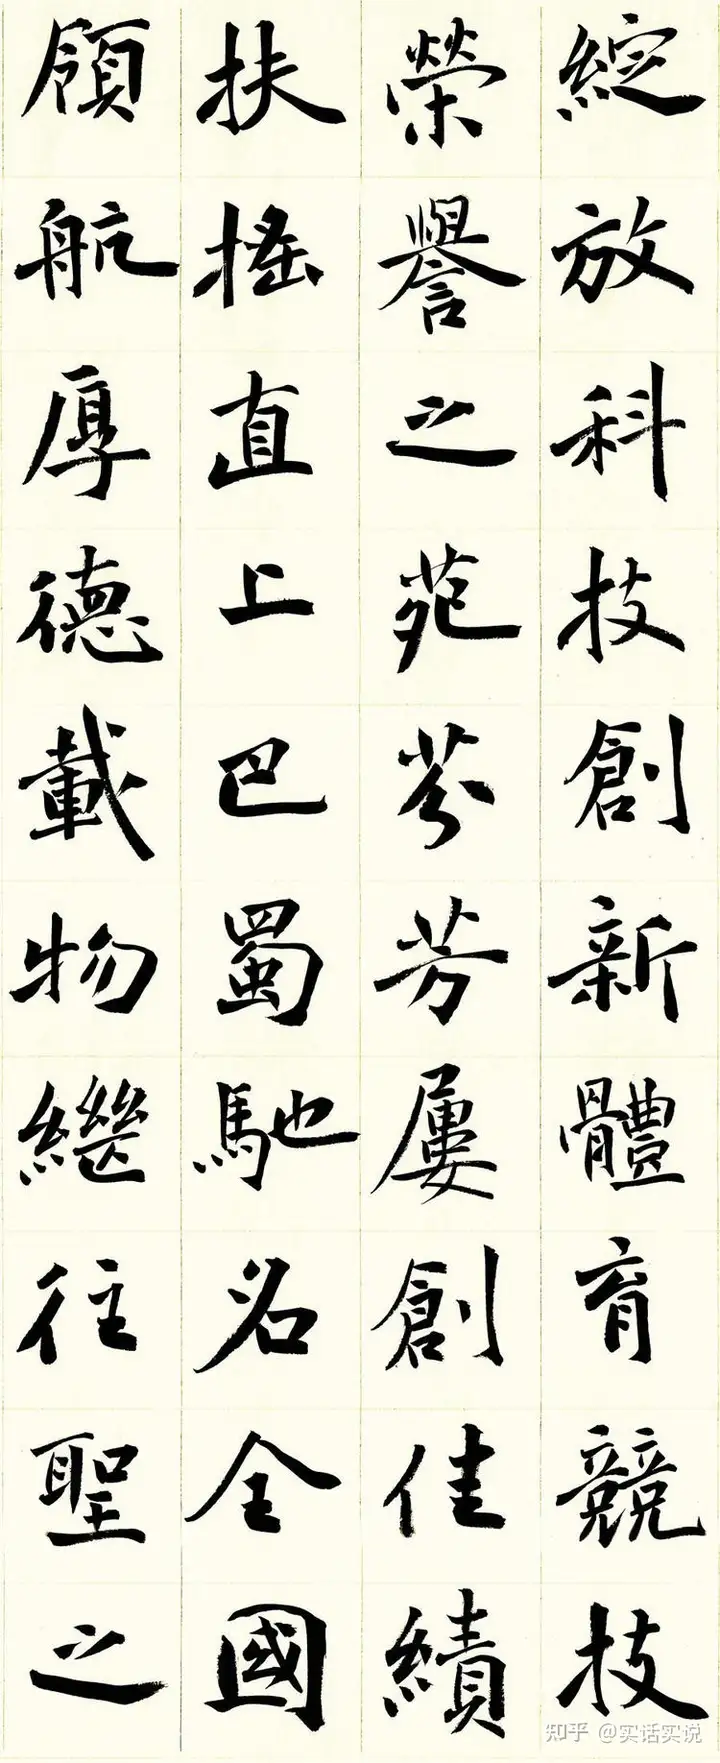 綻放科技創新體育競技
榮譽之苑芬芳屢創佳績
扶搖直上巴蜀馳名全國
領航厚德載物繼往聖之
知乎 @实话实说